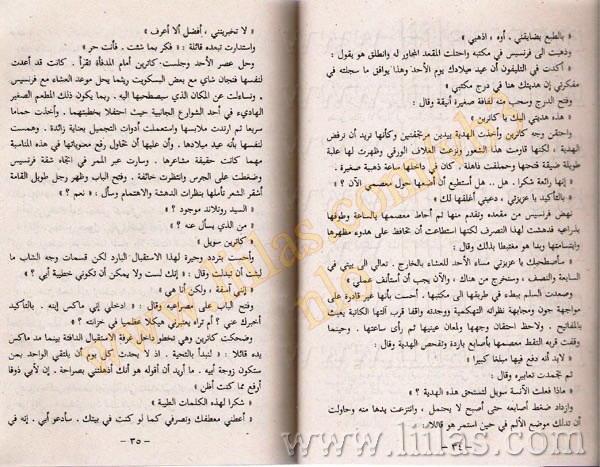 « بالطبع يضايقني . أوه ، اذهبي »
وذهبت الى فرنسيس في مكتبه واحتلت المقعد المجاور له وانطلق هو يقول :
« أكدت في التليفون أن عيد ميلادك يوم الأحد وهذا يوافق ما سجلته في
مفكرتي إن هديتك هنا في درج مكتبي »
وفتح الدرج وسحب منه لفافة صغيرة أنيقة وقال :
« هذه هديتي اليك يا كاترين »
واحتقن وجه كاترين وأخذت الهدية بيدين مرتجفتين وكأنها تريد أن ترفض
الهدية ، لكنها قاومت هذا الشعور ونزعت الغلاف الورقي وظهرت لها علبة
طويلة ضيقة فتحتها وحملقت ذاهلة . كان في داخلها ساعة ذهبية صغيرة .
« إنها رائعة شكرا . هل .. هل أستطيع أن أضعها حول معصمي الآن ؟ »
« بالتأكيد يا عزيزتي ، دعيني أغلقها لك »
نهض فرنسيس من مقعده وتقدم منها ثم أحاط معصمها بالساعة وطوقها
بذراعيه فدهشت لهذا التصرف لكنها استطاعت أن تحافظ على هدوء مظهرها
وابتسامتها وبدا هو مغتبطا بذلك وقال :
« سأصطحبك يا عزيزتي مساء الأحد للعشاء بالخارج . تعالي الى بيتي في
السابعة والنصف ، وسنخرج من هناك ، والآن يجب أن أستأنف عملي »
وصعدت السلم ببطء في طريقها الى مكتبها . أحست بأنها غير قادرة على
مواجهة جون ومجابهة نظراته التهكمية ووجدته واقفا قرب آلتها الكاتبة يعبث
بالمفاتيح . ولاحظ احتقان وجهها ولمعان عينيها ثم رأى ساعتها . وحينما
وقفت قربه التقط معصمها بأصابع باردة وتفحص الهدية وقال :
« لابد أنه دفع فيها مبلغا كبيرا »
ثم تجمدت تعابيره وقال :
« ماذا فعلت الآنسة سويل لتستحق هذه الهدية ؟ »
وازداد ضغط أصابعه حتى أصبح لا يحتمل ، وانتزعت يدها منه وحاولت
أن تدلك موضع الألم في حين استمر هو قائلا :
- ٣٤ -
« لا تخبريني ، أفضل ألا أعرف »
واستدارت تبعده قائلة : « فكر بما شئت . فأنت حر »
وحل عصر الأحد وجلست كاترين أمام المدفأة تقرأ . كانت قد أعدت
لنفسها فنجان شاي مع بعض البسكويت ريثما يحل موعد العشاء مع فرنسيس
. وتساءلت عن المكان الذي سيصطحبها اليه . ربما يكون ذلك المطعم الصغير
الهادىء في أحد الشوارع الجانبية حيث احتفلا بخطبتهما . وأخذت حماما
سريعا ثم ارتدت ملابسها واستعملت أدوات التجميل بعناية زائدة . وهمست
لنفسها بأنه عيد ميلادها . وأن عليها أن تحاول رفع معنوياتها في هذه المناسبة
مهما كانت حقيقة مشاعرها . وسارت عبر الممر في اتجاه شقة فرنسيس
وضغطت على الجرس وانتظرت خائفة . وفتح الباب وظهر رجل طويل القامة
أشقر الشعر تأملها بنظرات الدهشة والاهتمام وسأل : « نعم ؟ »
« السيد رونلاند موجود ؟ »
« من الذي يسأل عنه ؟ »
« كاترين سويل »
وأحست بتردد وحيرة لهذا الاستقبال البارد لكن قسمات وجه الشاب ما
لبثت أن تبدلت وقال : « إنك لست ولا يمكن أن تكوني خطيبة أبي ؟ »
« إنني آسفة ، ولكن أنا هي »
وفتح الباب على مصراعيه وقال : « ادخلي إني ماكس إبنه . بالتأكيد
أخبرك عني ؟ أم تراه يعتبرني هيكلا عظميا في خزانته ؟ »
وضحكت كاترين وهي تخطو داخل غرفة الاستقبال الدافئة بينما مد ماكس
يده قائلا : « لنبدأ بالتحية . اذ لا يحدث كل يوم أن يلتقي الواحد بمن
ستكون زوجة أبيه . ما أريد أن أقوله هو أنك أذهلتني بصراحة . إن لأبي ذوقا
أرفع مما كنت أظن »
« شكرا لهذه الكلمات الطيبة »
« أعطني معطفك وتصرفي كما لو كنت في بيتك . سأدعو أبي . إنه في
- ٣٥ -
www.liilas.com